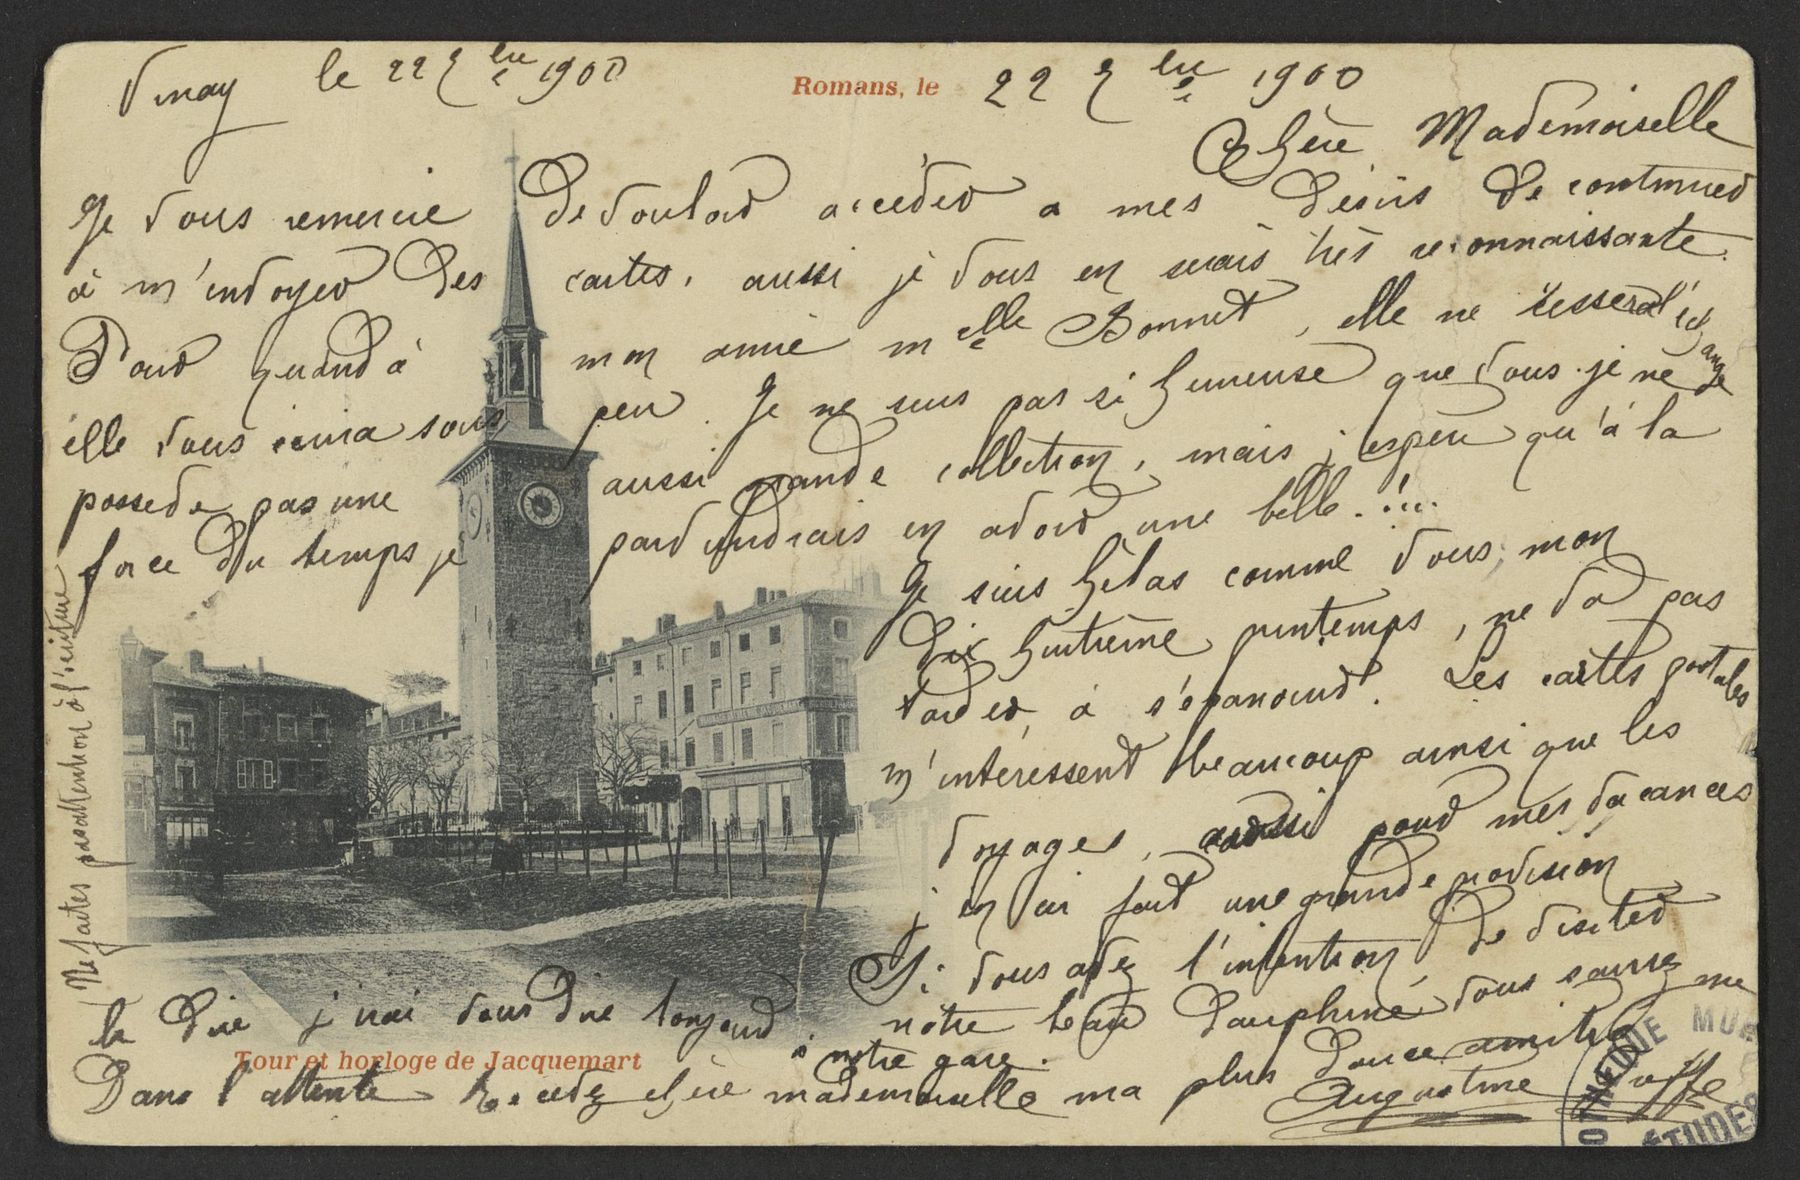 Vinay le 22 7bre 1900
Romans, le 22 7bre 1900
Chère Mademoiselle
Je vous remercie de vouloir accéder a mes désirs de continuer
à m'envoyer des cartes, aussi je vous en serais très reconnaissante.
Pour quand à mon amie Melle Bonnet, elle ne cessera l'échange
elle vous écrira sous peu. Je ne suis pas si heureuse que vous je ne
possede pas une aussi grande collection, mais j'espère qu'à la
force du temps je parviendrais en avoir une belle.!...
Je suis hélas comme vous, mon
dix huitième printemps, ne va pas
tarder à s'épanouir. Les cartes postales
m'intéressent beaucoup ainsi que les
voyages, aussi pour mes vacances
j'en ai fait une grande provision
Si vous avez l'intention de visiter
notre beau Dauphiné vous saurez me
le dire j'irai vous dire bonjour à notre gare.
Tour et horloge de Jacquemart
Dans l'attente recevez chère mademoiselle ma plus douce amitié
Augustine
Ne faites pas attention à l'écriture